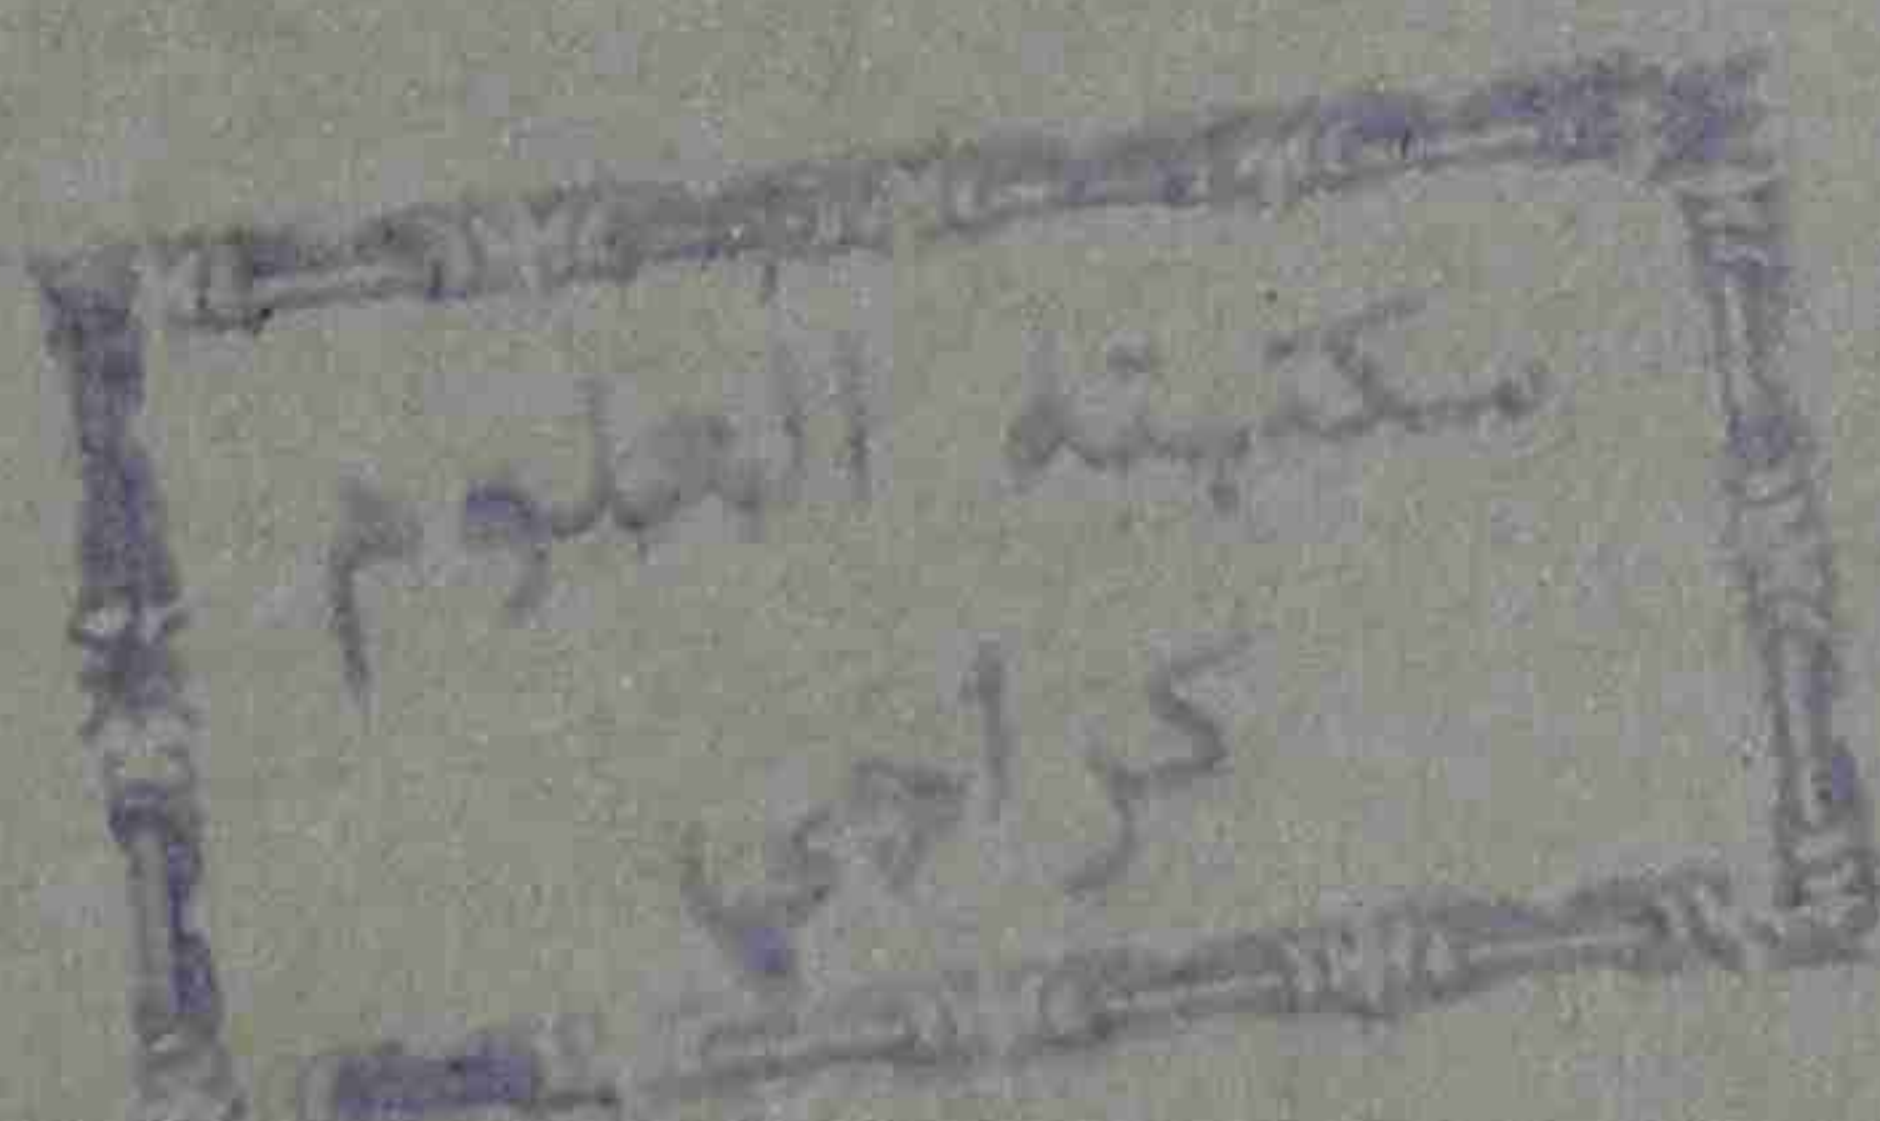 سكينة العلوم
كراچی